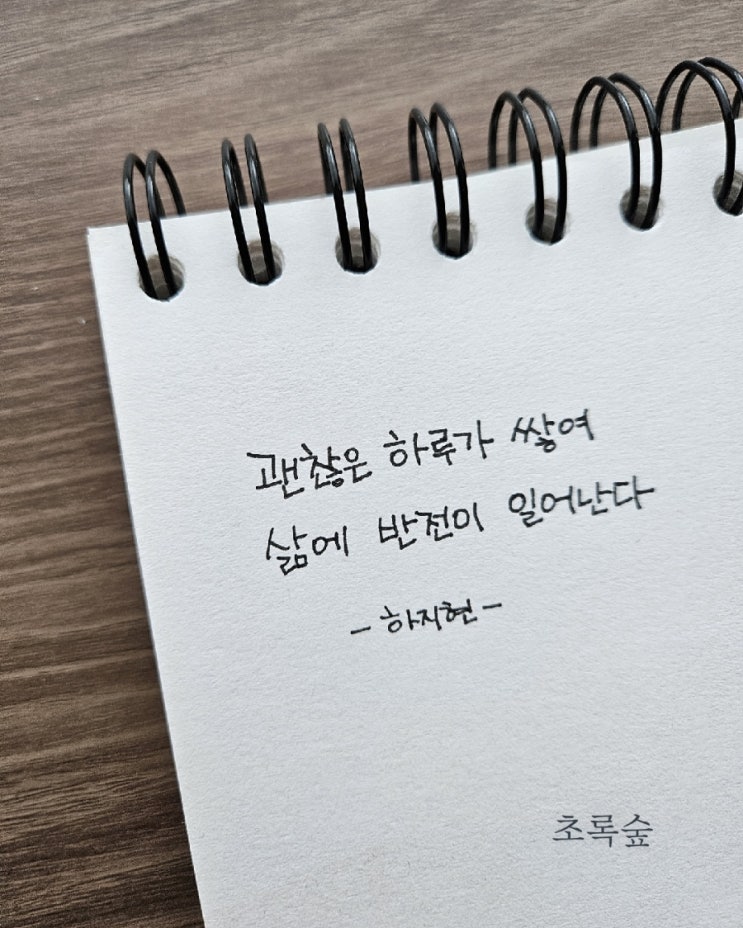 괜찮은 하루가 쌓여
삶에 반전이 일어난다
- 하지현 -
초록숲